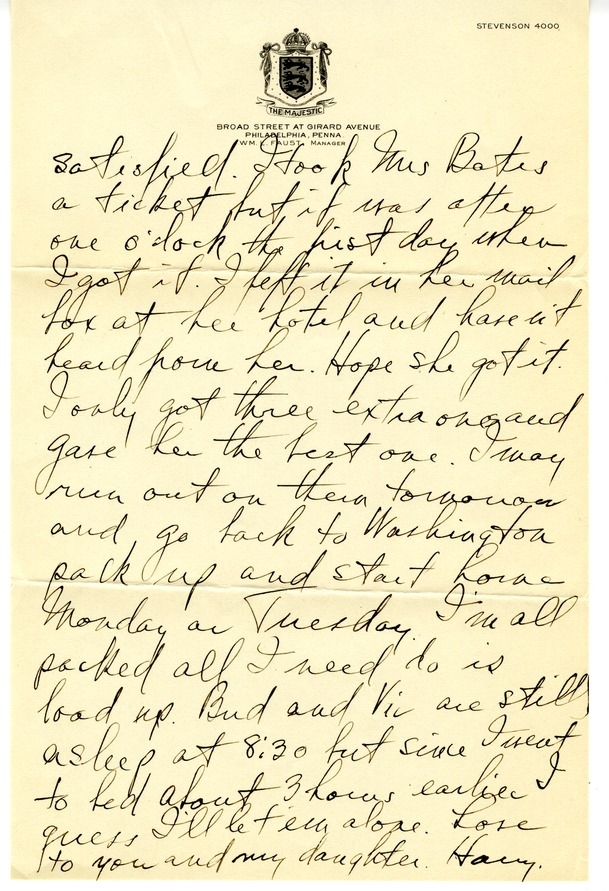 STEVENSON 4000
THE MAJESTIC
BROAD STREET AT GIRARD AVENUE
PHILADELPHIA, PENNA.
WM. L. FAUST, MANAGER
satisfied. I took Mrs Bates
a ticket but it was after
one o'clock the first day when
I got it. I left it in her mail
box at her hotel and haven't
heard from her. Hope she got it.
I only got three extra ones and
gave her the best one. I may
run out on them tomorrow
and go back to Washington
pack up and start home
Monday or Tuesday. I'm all
packed all I need do is
load up. Bud and Vic are still
asleep at 8:30 but since I went
to bed about 3 hours earlier I
guess I'll let em alone. Love
to you and my daughter. Harry.